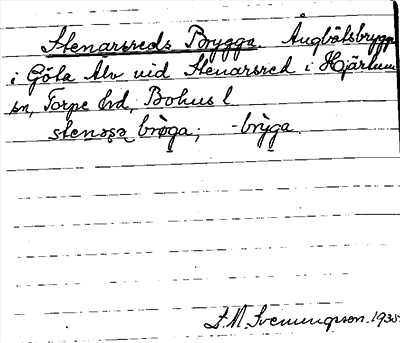 Stenarsreds Brygga. Ångbåtsbrygga
i Göta Älv vid Stenarsred i Hjärtum
sn, Torpe hd, Bohus l
stenəʂə brøga; -brỳga.
F. M. Svenungsson. 1935.